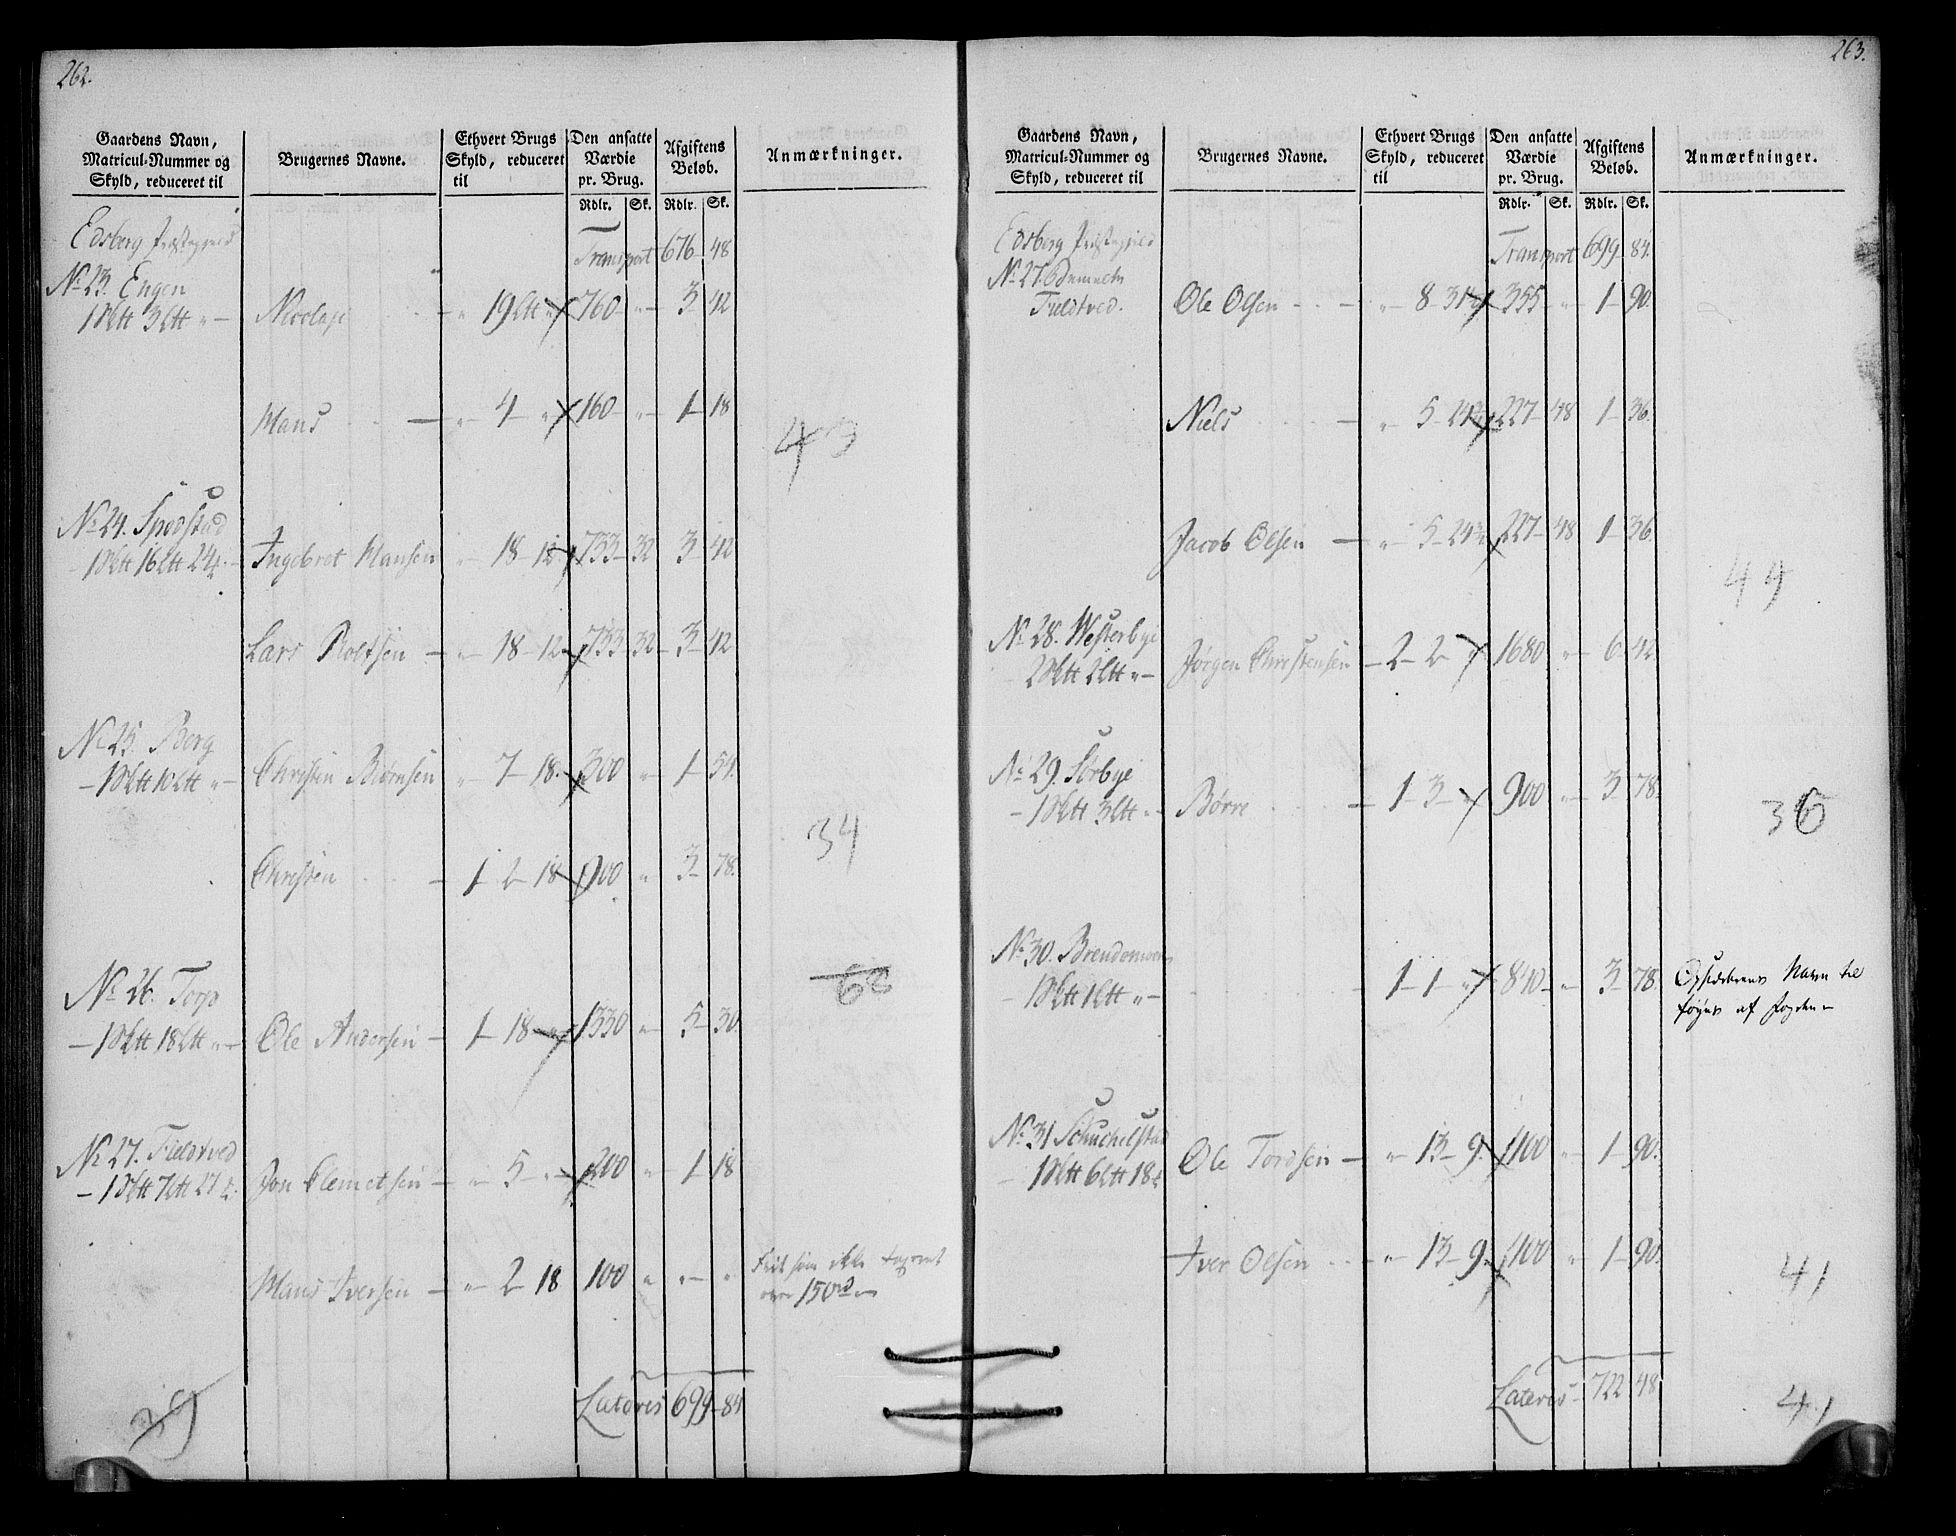 262.
Gaardens Navn, Matricul-Nummer og Skyld, reduceret til | Brugernes Navne. | Ethvert Brugs Skyld, reduceret til | Den ansatte Værdie pr. Brug. | Afgiftens Beløb. | Anmærkninger.
Rdlr. Sk. Rdlr. Sk.
Edsberg Præstegield Transport 676 48
No 23. Engen
3 Nicolay " 19 760 " 3 42
Mans " 4 " 160 " 1 18
43
No 24. Spydstad
16 24 Ingebret Hansen " 18 12 733 32 3 42
Lars Roltsen " 18 12 733 32 3 42
No 25. Berg
10 " Christen Biørnsen " 7 18. 300 " 1 54.
34
Christen 1 2 18 900 " 3 78.
No 26. Torp
68
18 " Ole Andersen 1 18 " 1330 " 5 30
No 27. Fieldtved
7 27 Jon Clemetsen " 5 " 200 " 1 18
Mans Iversen " 2 18 100 " " " ikke taxeret
over 150
Lateris 699 84
39
263.
Gaardens Navn, Matricul-Nummer og Skyld, reduceret til | Brugernes Navne. | Ethvert Brugs Skyld, reduceret til | Den ansatte Værdie pr. Brug. | Afgiftens Beløb. | Anmærkninger.
Rdlr. Sk. Rdlr. Sk.
Edsberg Præstegield Transport 699 84.
No 27.
Fieldtved. Ole Olsen " 8 355 " 1 90.
Niels " 5 227 48 1 36.
Jacob Olsen " 5 227 48 1 36.
49
No 28. Westerbye
2 Jørgen Christensen 2 2 " 1680 " 6 42
No 29. Sørbye
3 " Børre 1 3 " 900 " 3 78.
36
No 30. Brendemoen
1 " 1 1 " 840 " 3 78. Opsidderens Navn til
føyes af Fogden
No 31 Schuchelstad
6 18 Ole Tordsen " 13 9. 400 " 1 90.
Iver Olsen " 13 9 400 " 1 90.
41
Lateris 722 48
41